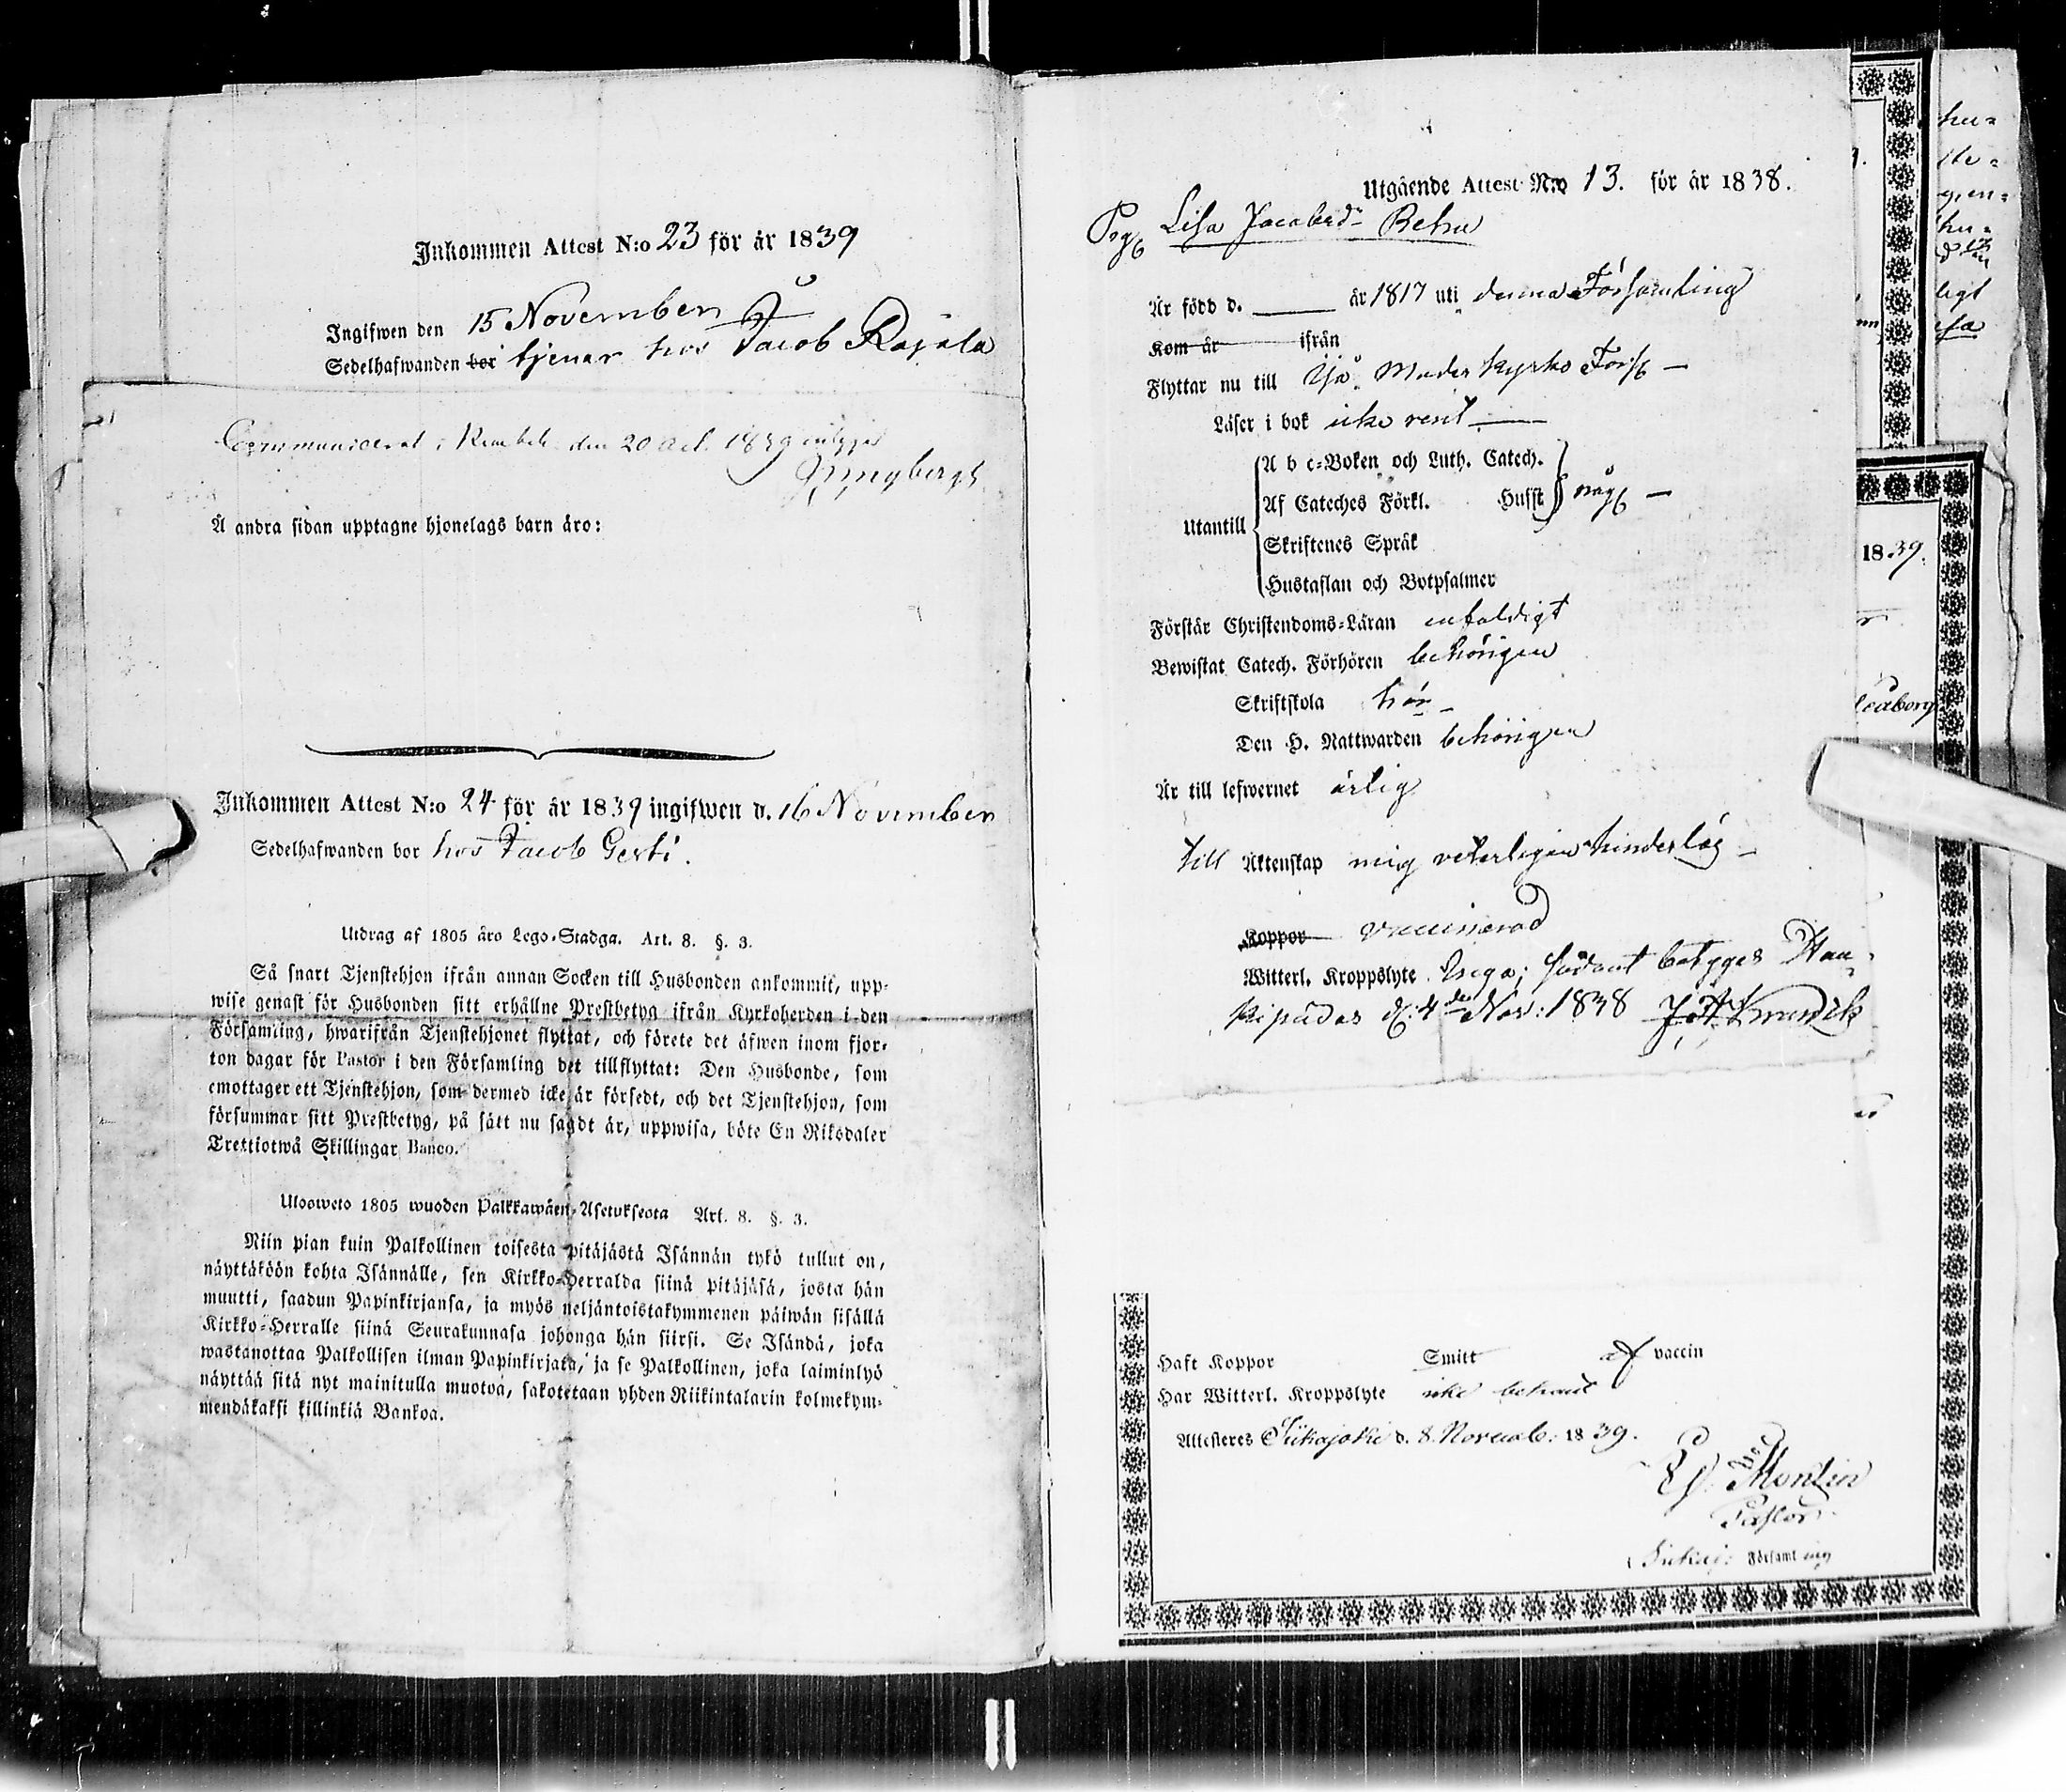 Inkommen Attest N:o 23 för år 1839
Ingifwen den 15 November
Sedelhafwanden bor tjenar hos Jacob Rajala
Communicerat i Kembele den 20 Oct. 1839 intygar
Å andra sidan upptagne hjonelags barn äro:
Inkommen Attest N:o 24 för år 1839 ingifwen d. 16 November
Sedelhafwanden bor hos Jacob Gesti.
Utdrag af 1805 års Lego-Stadga. Art. 8. §. 3.
Så snart Tjenstehjon ifrån annan Socken till Husbonden ankommit, upp-
wise genast för Husbonden sitt erhållne Prestbetyg ifrån Kyrkoherden i den
Församling, hwarifrån Tjenstehjonet flyttat, och förete det äfwen inom fjor-
ton dagar för Pastor i den Församling det tillflyttat: Den Husbonde, som
emottager ett Tjenstehjon, som dermed icke är försedt, och det Tjenstehjon, som
försummar sitt Prestbetyg, på sätt nu sagdt är, uppwisa, böte En Riksdaler
Trettiotwå Skillingar Banco.
Ulosweto 1805 wuoden Palkkawäen-Asetuksesta Art. 8. §. 3.
Niin pian kuin Palkollinen toisesta pitäjästä Isännän tykö tullut on,
näyttäköön kohta Isännälle, sen Kirkko-Herralda siinä pitäjäsä, josta hän
muutti, saadun Papinkirjansa, ja myös neljäntoistakymmenen päiwän sisällä
Kirkko-Herralle siinä Seurakunnasa johonga hän siirsi. Se Isändä, joka
wastanottaa Palkollisen ilman Papinkirjata, ja se Palkollinen, joka laiminlyö
näyttää sitä nyt mainitulla muotoa, sakotetaan yhden Riikintalarin kolmekym-
mendäkaksi killinkiä Bankoa.
Utgående Attest N:o 13. för år 1838.
Pig. Lisa Jacobsd:r Rehu
Är född d. ___ år 1817 uti denna Församling
Kom år ifrån
Flyttar nu till Ijå Moder kyrko Förs.
Läser i bok icke rent
A b c-Boken och Luth. Catech.
Af Cateches Förkl. Husst någ.
Utantill
Skriftenes Språk
Hustaflan och Botpsalmer
Förstår Christendoms-Läran enfaldigt
Bewistat Catech. Förhören behörigen
Skriftskola här
Den H. Nattwarden behörigen
Är till lefwernet ärlig
till Äktenskap mig veterligen hinderlös
Koppor vaccinerad
Witterl. Kroppslyte inga; sådant betygas Hau-
kipudas d. 4 de Nov: 1838
Haft Koppor Smitt af vaccin
Har Witterl. Kroppslyte icke bekant
Attesteras Siikajoki d. 8. Novemb: 1839.
Montin
Pastor
i Siikaj: Församling
hu=
hu=
ligt
1839.
leåborg